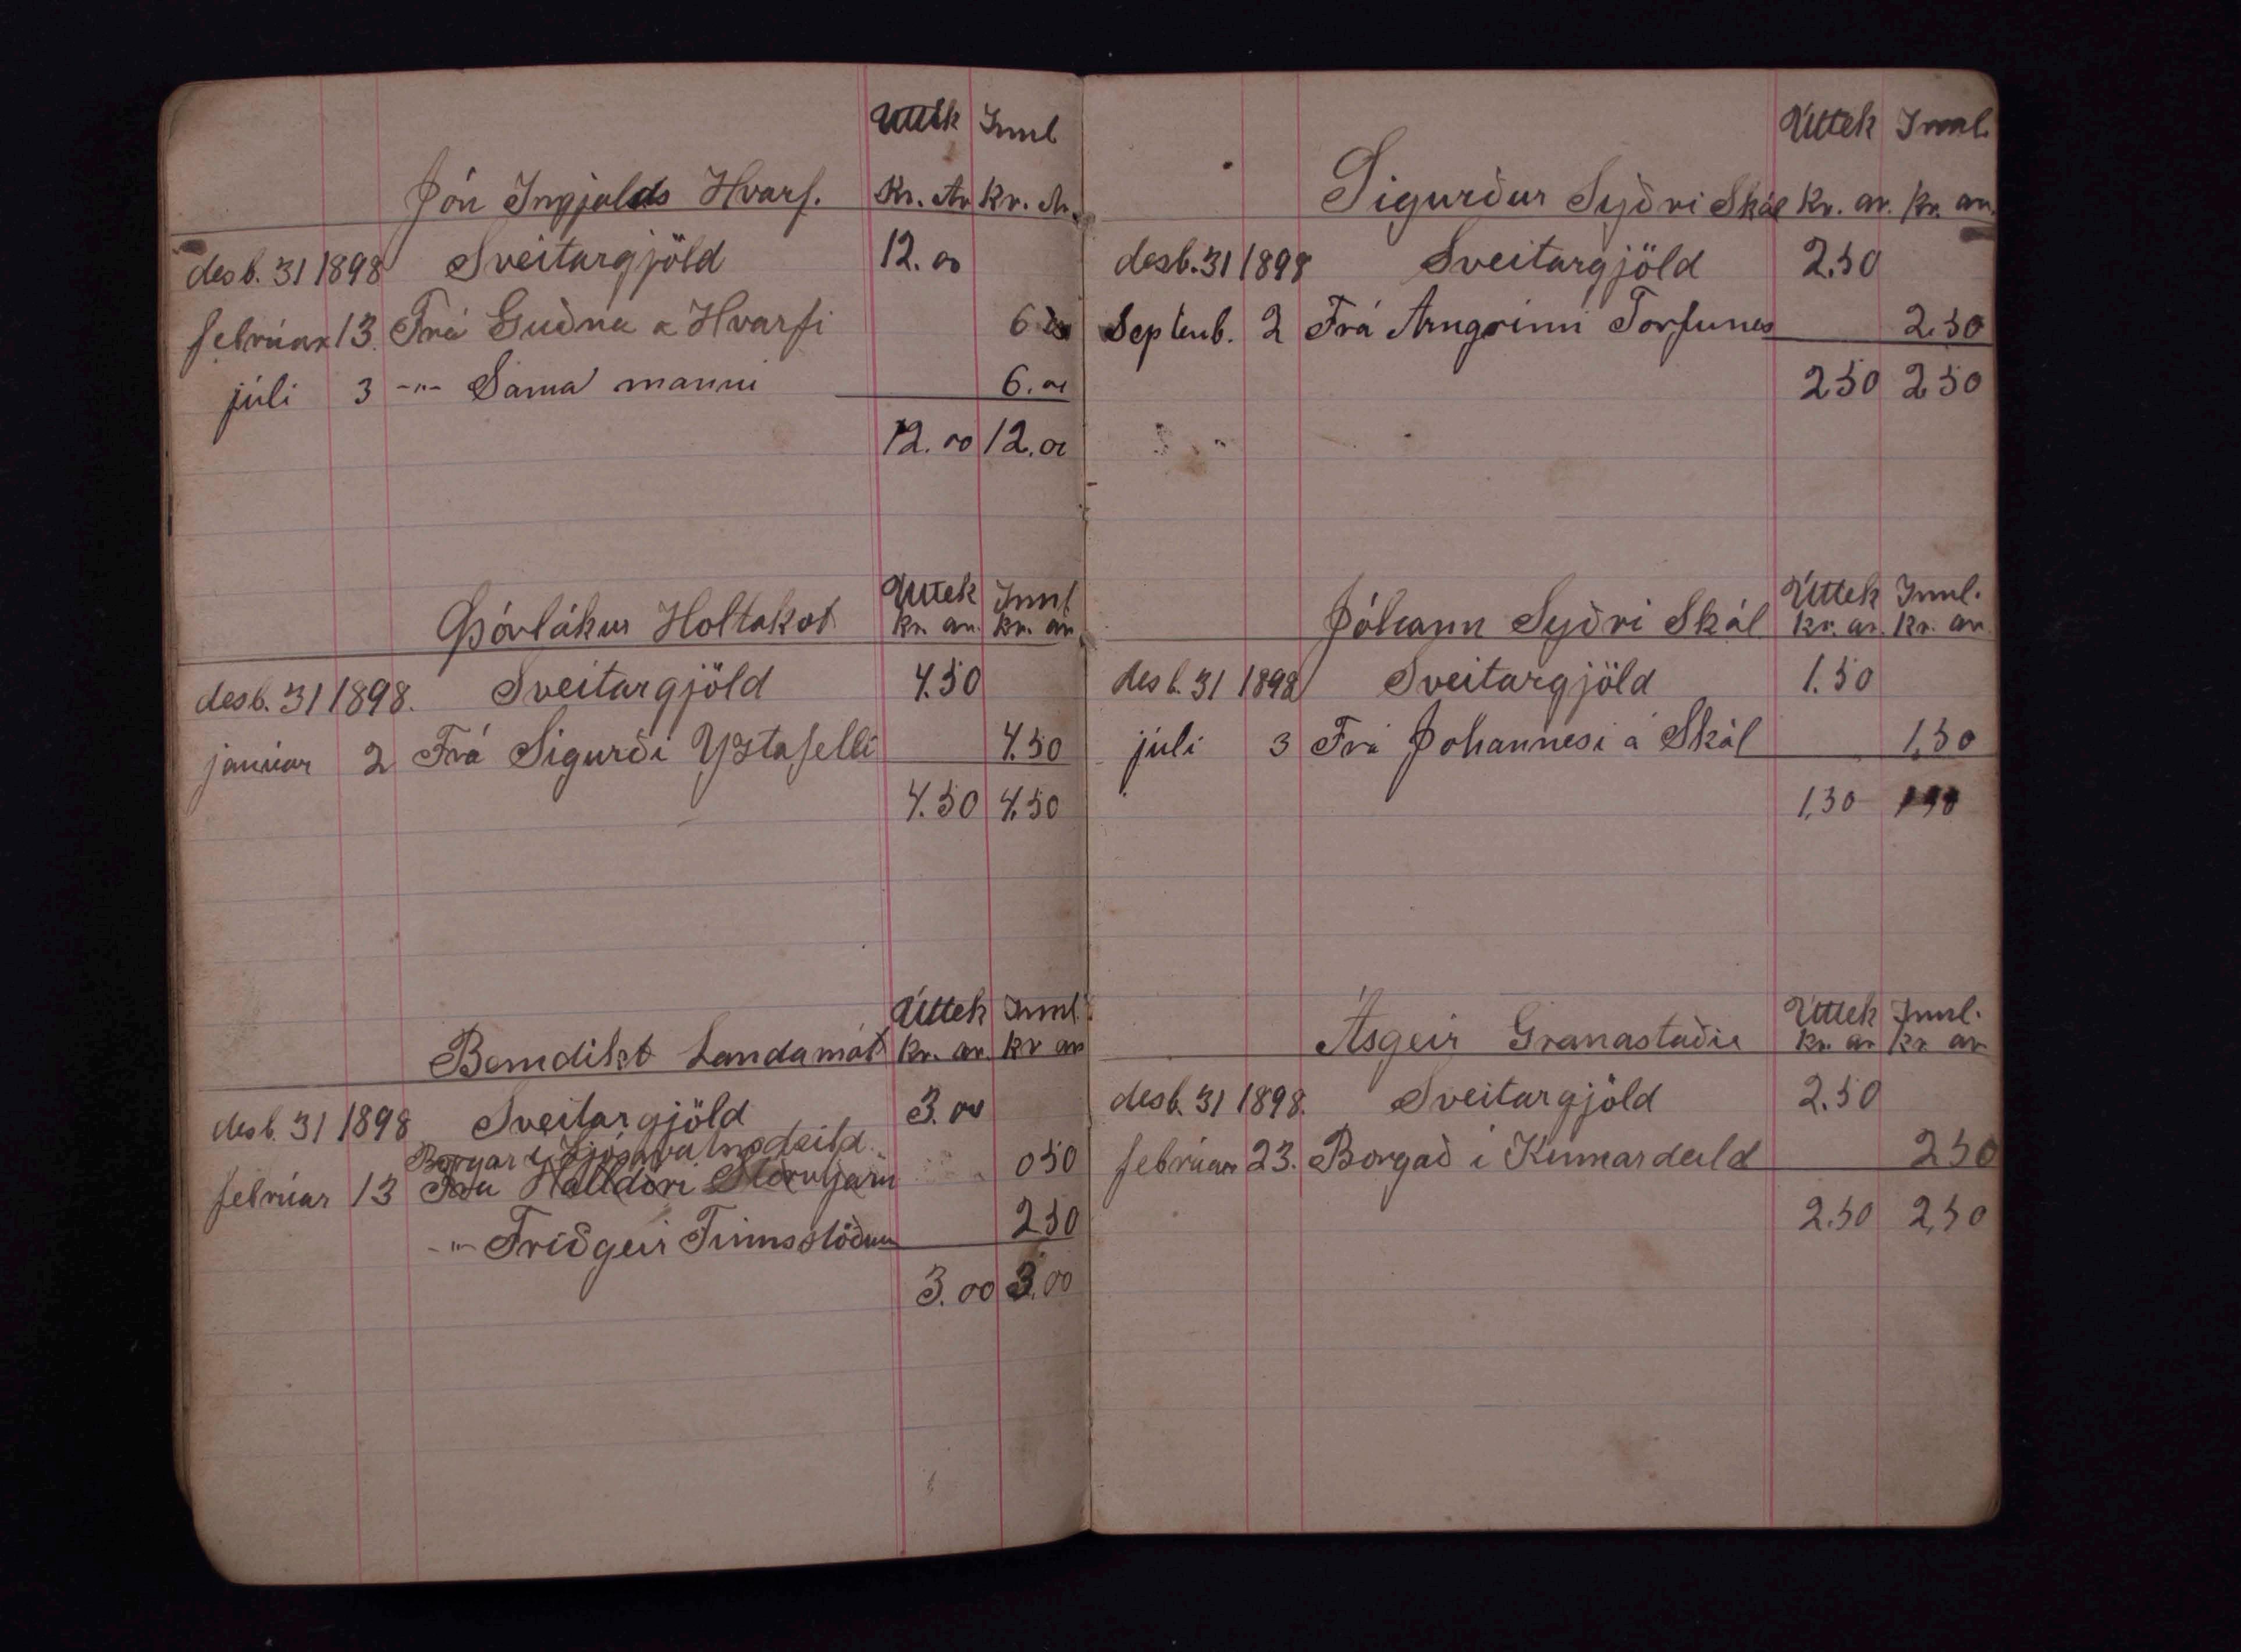 Úttek Innl
Jón Ingjalds Hvarf. Kr. Ar Kr. Ar.
desb. 31 1898 Sveitargjöld 12.00
febrúar 13. Frá Guðna a Hvarfi 6.00
júli 3 -"- Sama manni 6.00
12.00 12.00
Úttek Innl
Þórlákur Holtakot kr. ar. kr. ar
desb. 31 1898. Sveitargjöld 4.50
janúar 2 Frá Sigurði Ystafelli 4.50
4.50 4.50
Úttek Innl.
Benidikt Landamót kr. ar. kr ar
desb. 31 1898 Sveitargjöld 3.00
Borgar í Ljósavatnsdeild
febrúar 13 Frá Halldóri Stórutjarn 050
-"- Friðgeir Finnsstöðum 250
3.00 3.00
Úttek Innl.
Sigurður Syðri Skál Kr. ar. kr. ar.
desb. 31 1898 Sveitargjöld 2.50
Septemb. 2 Frá Arngrimi Torfunes 2.50
250 250
Úttek Innl.
Jóhann Syðri Skál kr. ar. kr. ar
desb. 31 1898 Sveitargjöld 1.50
júli 3 Frá Johannesi á Skál 1,50
1,50 150
Úttek Innl.
Ásgeir Granastaðir kr. ar kr ar
desb. 31 1898. Sveitargjöld 2.50
febrúar 23. Borgað i Kinnardeild 250
2.50 2,50